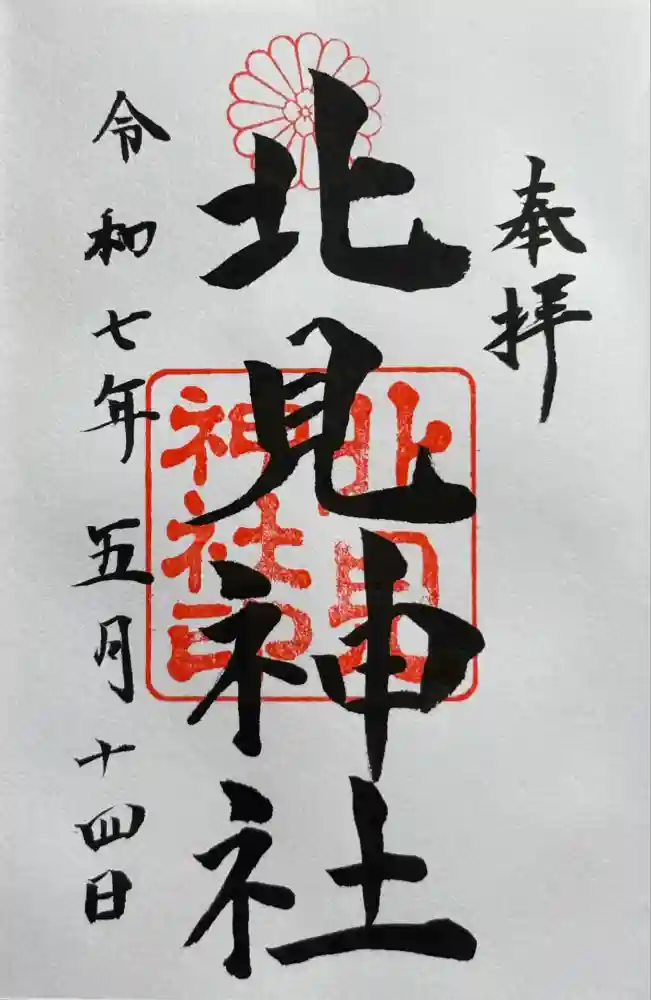 奉拝
北見神社
北見
神社印
令和七年五月十四日